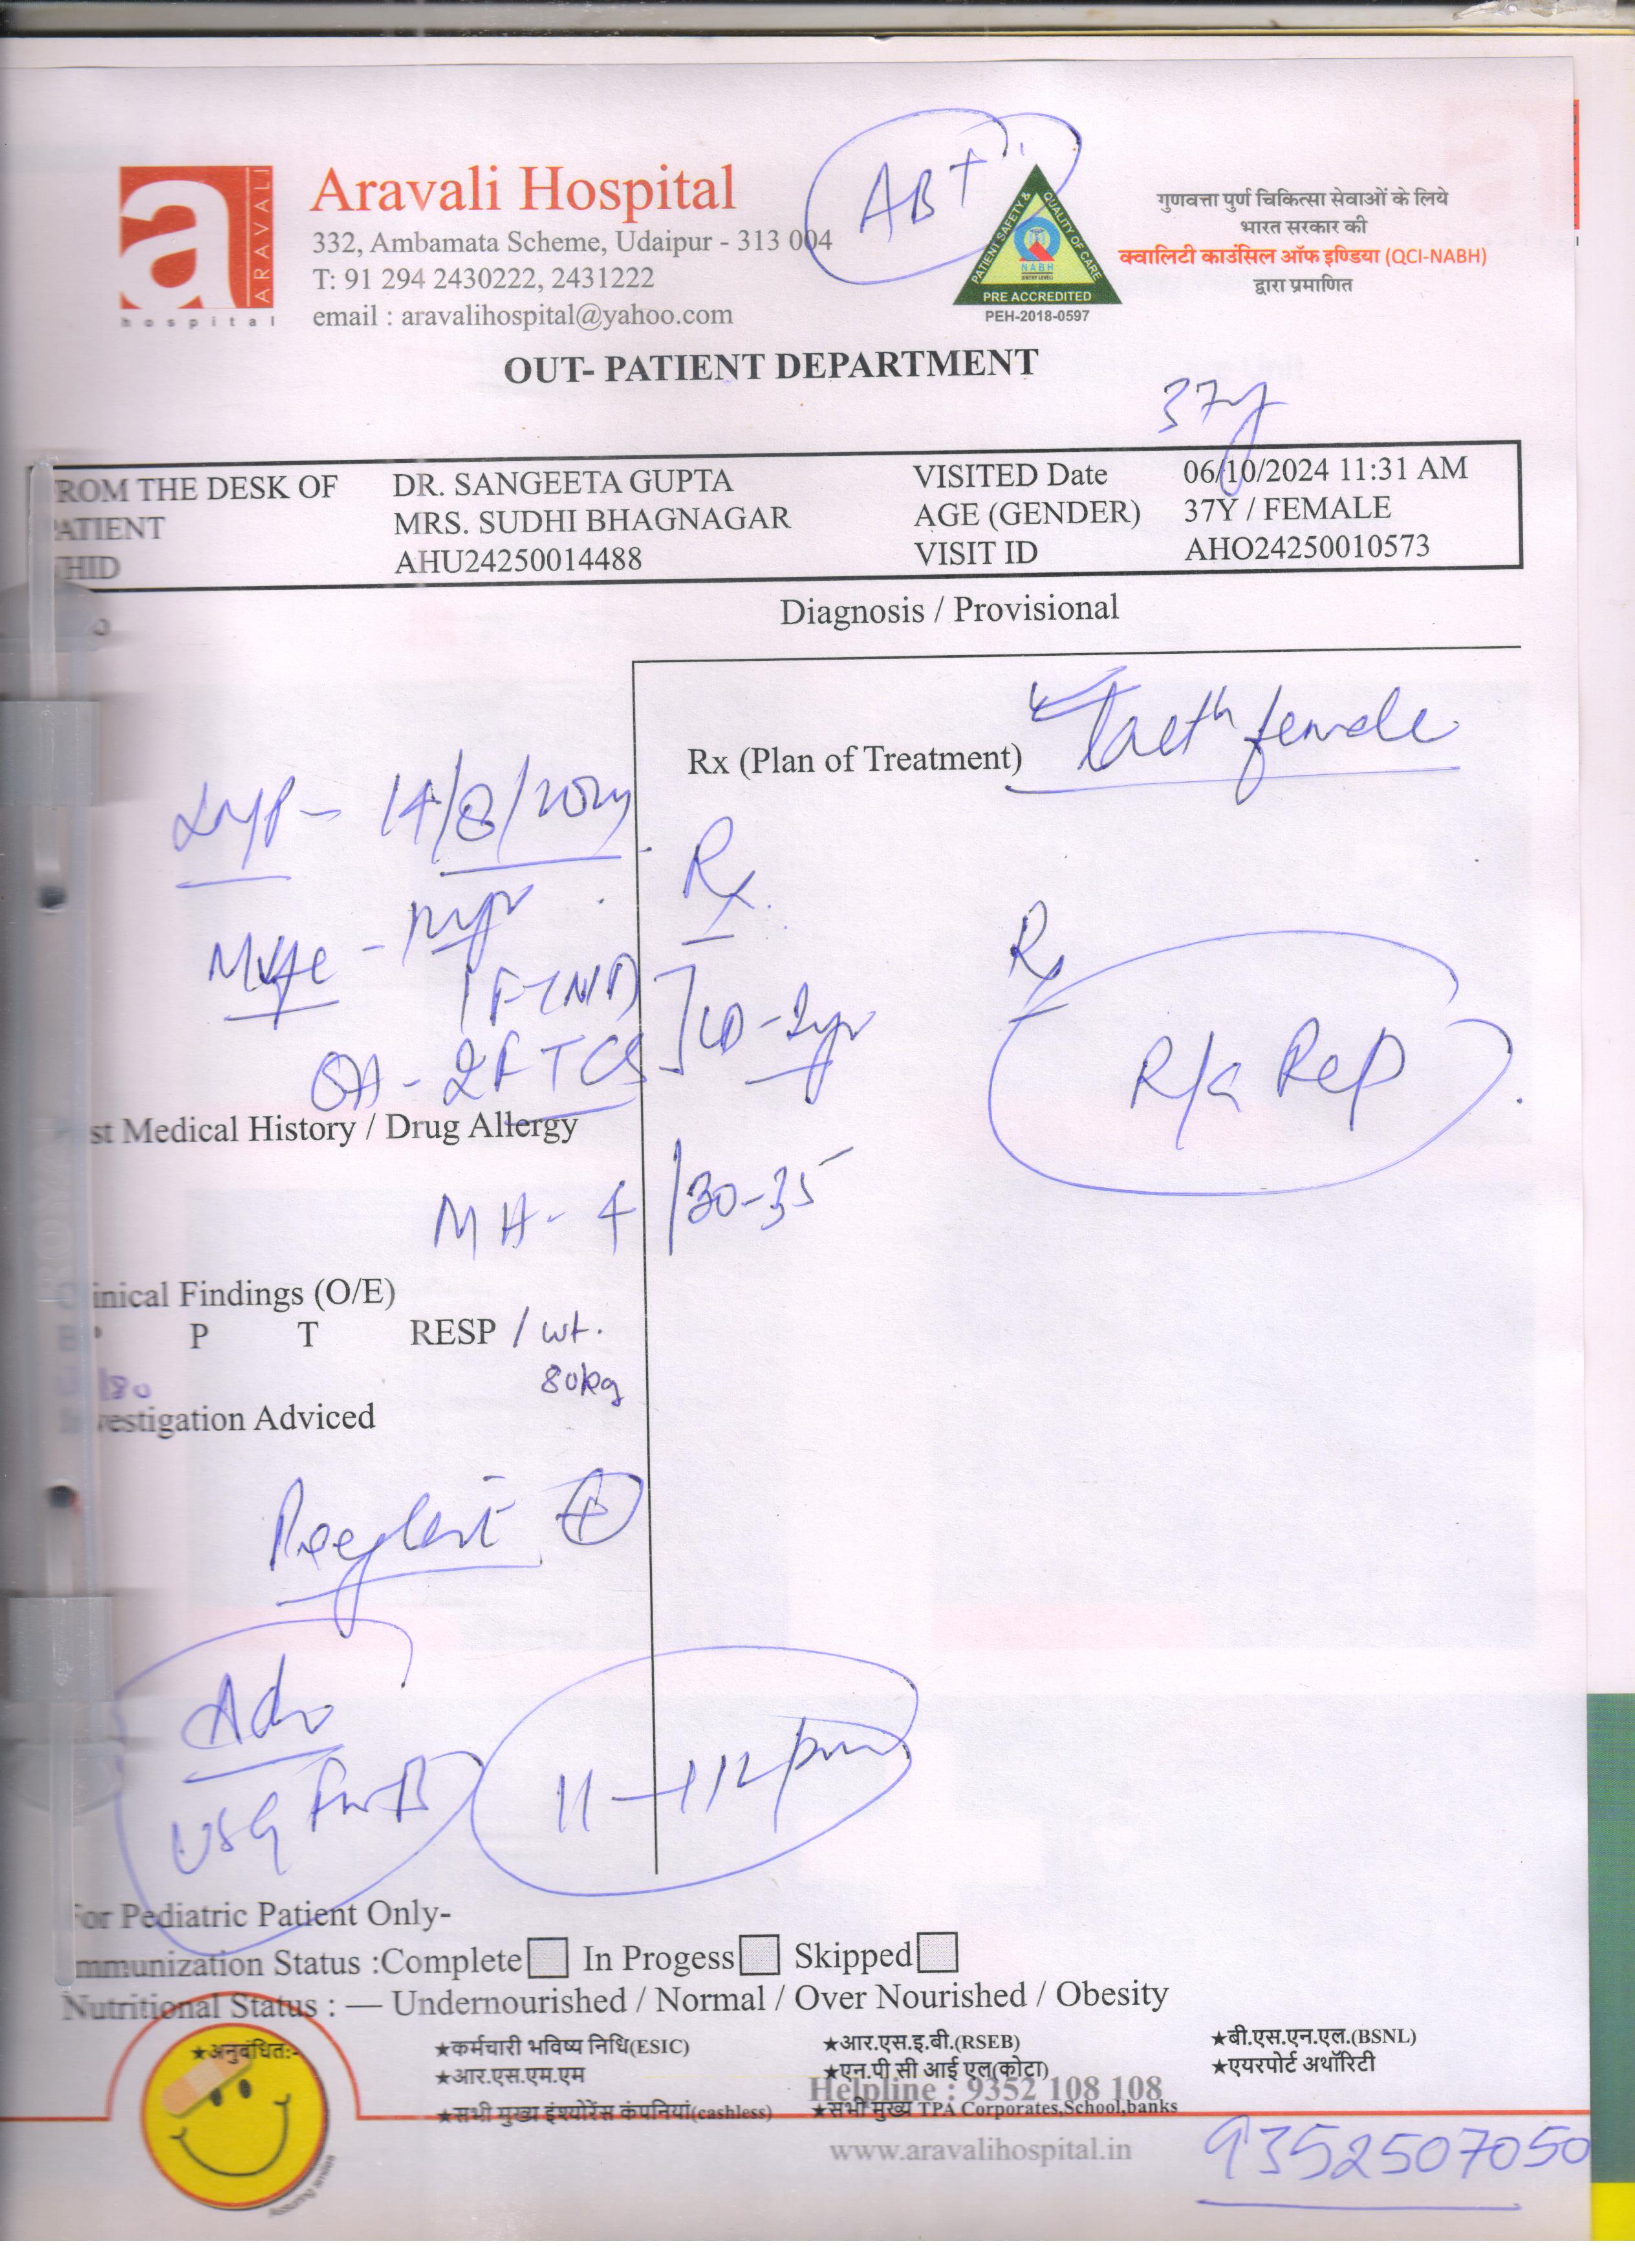 AB+
a ARAVALI
hospital
Aravali Hospital
332, Ambamata Scheme, Udaipur - 313 004
T: 91 294 2430222, 2431222
email : aravalihospital@yahoo.com
PATIENT SAFETY & QUALITY OF CARE
NABH
PRE ACCREDITED
PEH-2018-0597
गुणवत्ता पुर्ण चिकित्सा सेवाओं के लिये
भारत सरकार की
क्वालिटी काउंसिल ऑफ इण्डिया (QCI-NABH)
द्वारा प्रमाणित
OUT- PATIENT DEPARTMENT
37y
ROM THE DESK OF DR. SANGEETA GUPTA VISITED Date 06/10/2024 11:31 AM
PATIENT MRS. SUDHI BHAGNAGAR AGE (GENDER) 37Y / FEMALE
HID AHU24250014488 VISIT ID AHO24250010573
Diagnosis / Provisional
Rx (Plan of Treatment) female
LMP - 14/8/2024
Rx
Rx
1 FTND
OH - 2 FTCS ] LD - 2yr
R/a Rep
st Medical History / Drug Allergy
MH - 4/30-35
inical Findings (O/E)
P T RESP / wt.
/80 80kg
vestigation Adviced
Adv
USG 11 - 12 pm
For Pediatric Patient Only-
mmunization Status :Complete In Progess Skipped
Nutritional Status : — Undernourished / Normal / Over Nourished / Obesity
★अनुबंधित:-
★कर्मचारी भविष्य निधि(ESIC) ★आर.एस.इ.बी.(RSEB) ★बी.एस.एन.एल.(BSNL)
★आर.एस.एम.एम ★एन.पी.सी आई एल(कोटा) ★एयरपोर्ट अथॉरिटी
Helpline : 9352 108 108
★सभी मुख्य इंश्योरेंस कंपनियां(cashless) ★सभी मुख्य TPA Corporates,School,banks
www.aravalihospital.in
9352507050